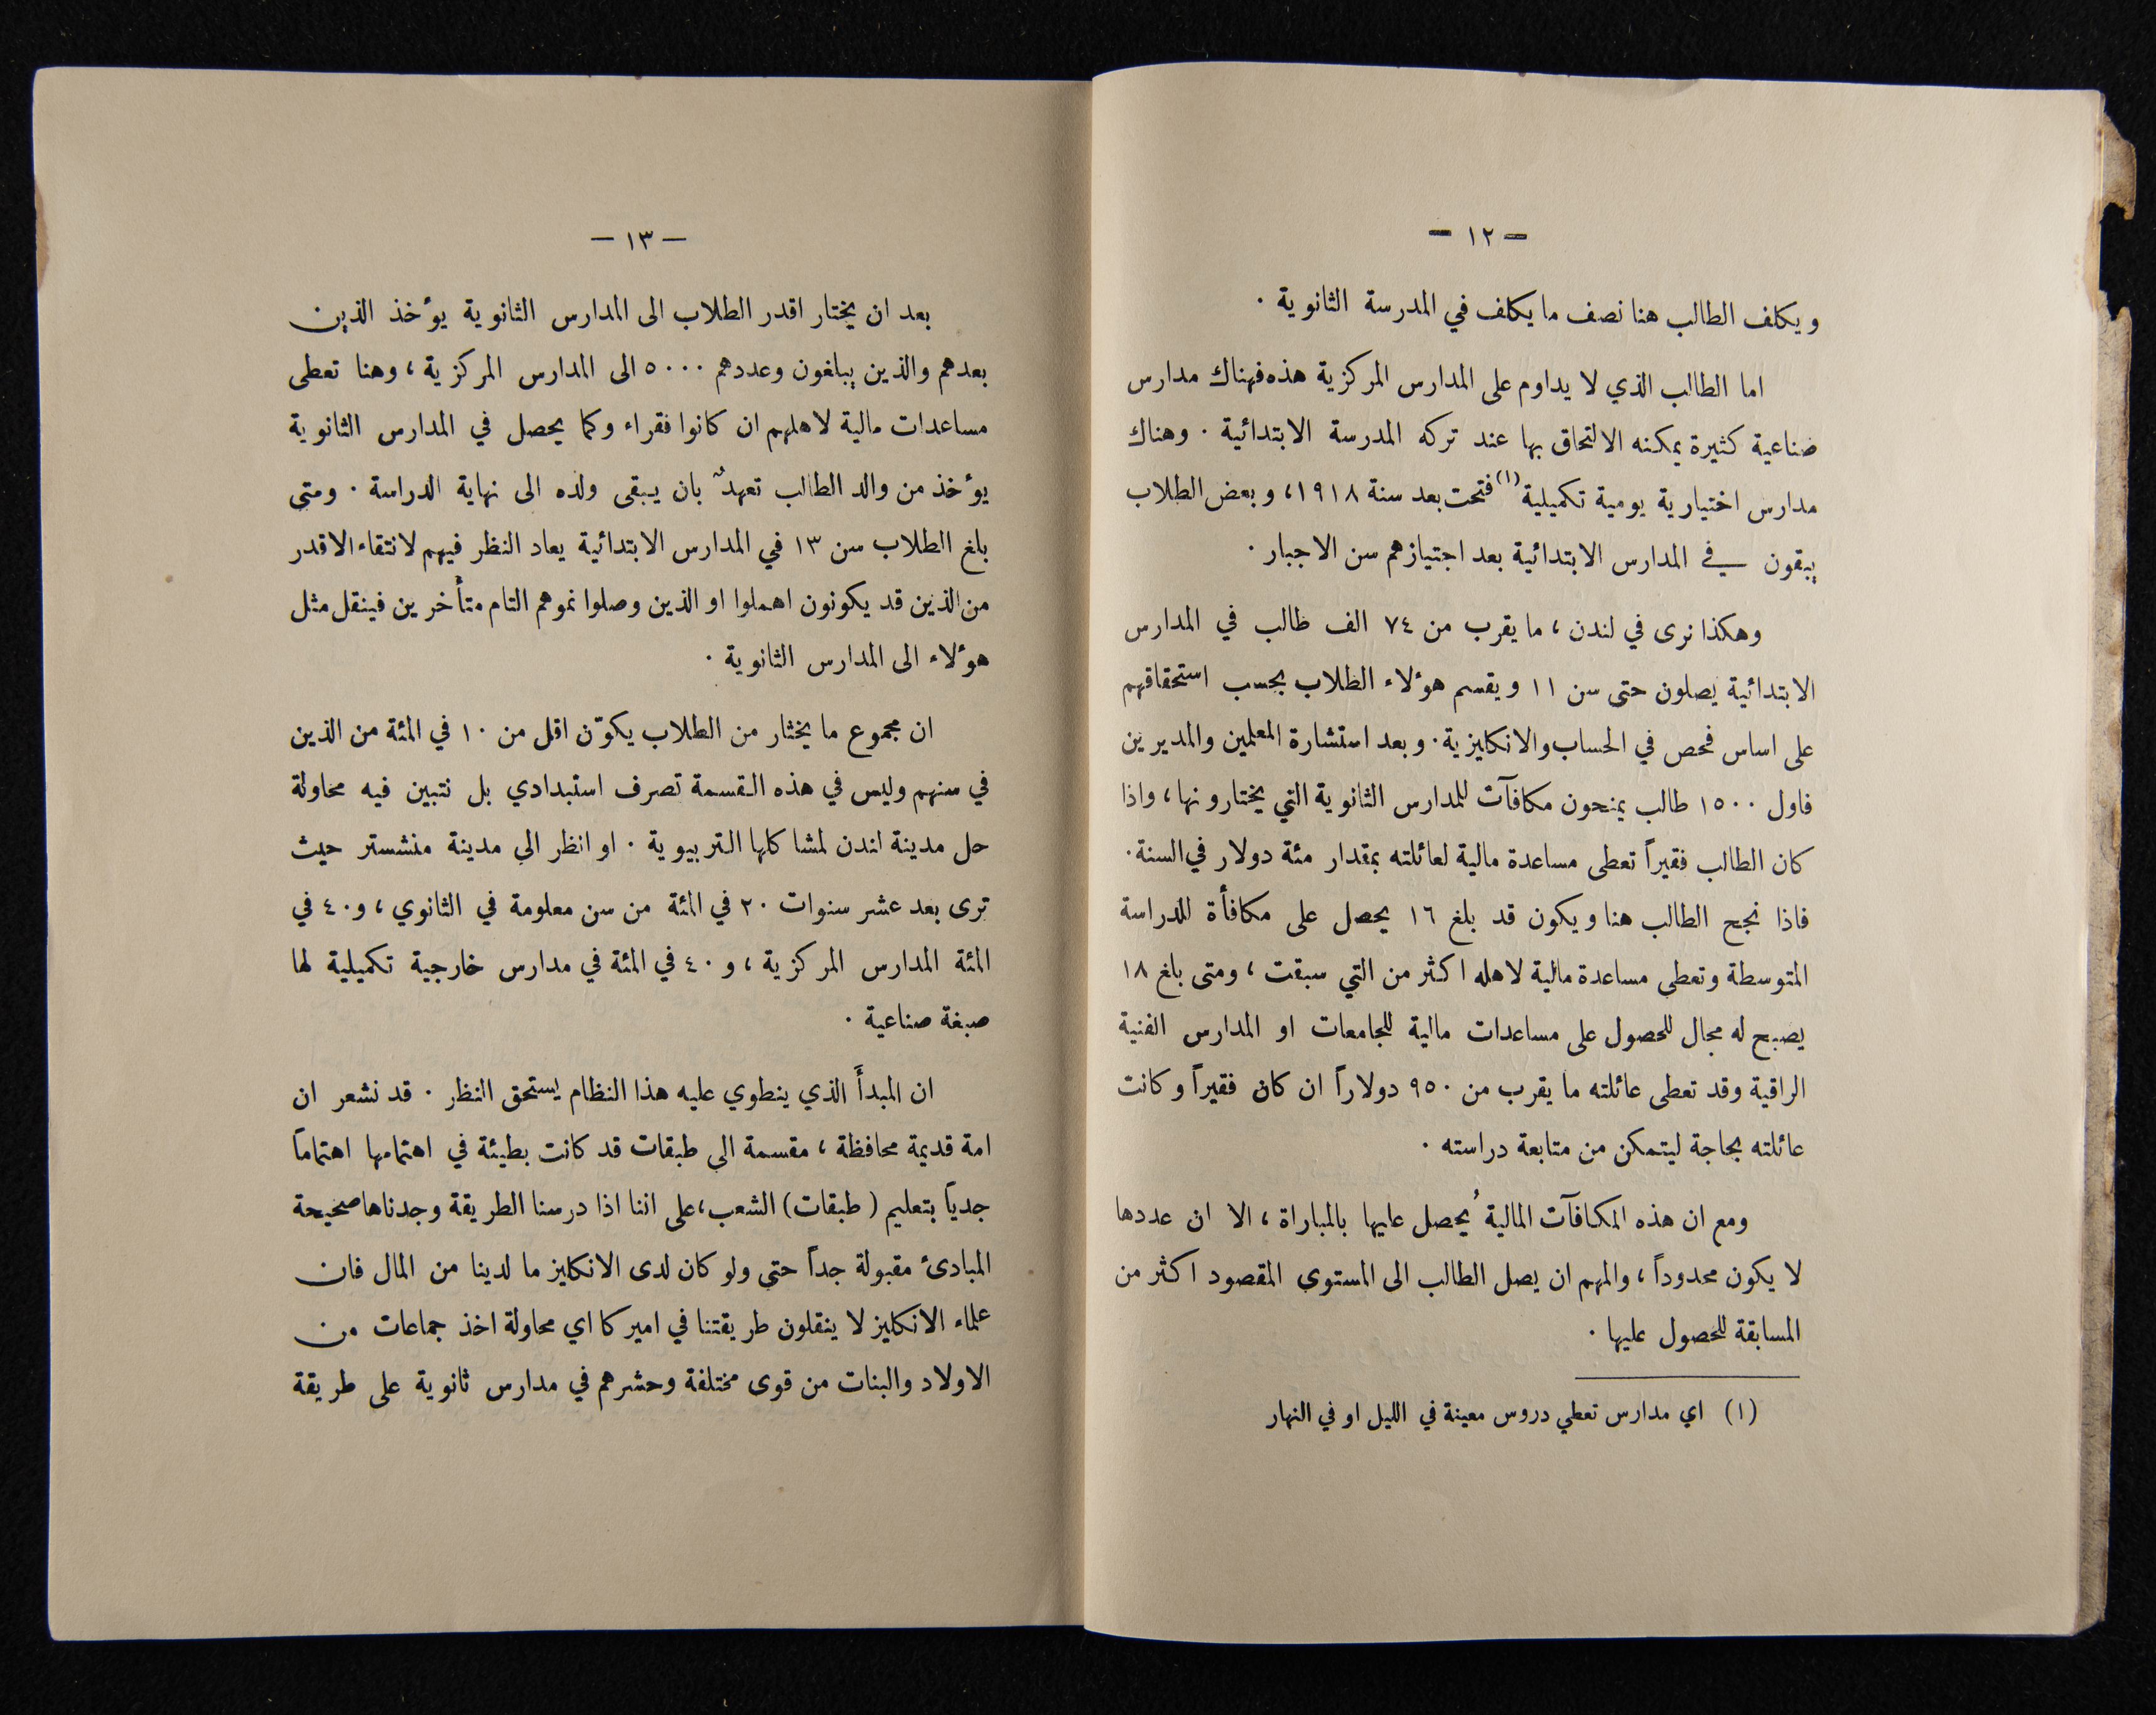 — ١٢ —
ويكلف الطالب هنا نصف ما يكلف في المدرسة الثانوية .
اما الطالب الذي لا يداوم على المدارس المركزية هذه فهناك مدارس
صناعية كثيرة يمكنه الالتحاق بها عند تركه المدرسة الابتدائية . وهناك
مدارس اختيارية يومية تكميلية (١) فتحت بعد سنة ١٩١٨، وبعض الطلاب
يبقون في المدارس الابتدائية بعد اجتيازهم سن الاجبار .
وهكذا نرى في لندن، ما يقرب من ٧٤ الف طالب في المدارس
الابتدائية يصلون حتى سن ١١ ويقسم هؤلاء الطلاب بحسب استحقاقهم
على اساس فحص في الحساب والانكليزية . وبعد استشارة المعلمين والمديرين
فاول ١٥٠٠ طالب يمنحون مكافآت للمدارس الثانوية التي يختارونها، واذا
كان الطالب فقيراً تعطى مساعدة مالية لعائلته بمقدار مئة دولار في السنة .
فاذا نجح الطالب هنا ويكون قد بلغ ١٦ يحصل على مكافأة للدراسة
المتوسطة وتعطى مساعدة مالية لاهله اكثر من التي سبقت، ومتى بلغ ١٨
يصبح له مجال للحصول على مساعدات مالية للجامعات او المدارس الفنية
الراقية وقد تعطى عائلته ما يقرب من ٩٥٠ دولاراً ان كان فقيراً وكانت
عائلته بحاجة ليتمكن من متابعة دراسته .
ومع ان هذه المكافآت المالية يُحصل عليها بالمباراة، الا ان عددها
لا يكون محدوداً، والمهم ان يصل الطالب الى المستوى المقصود اكثر من
المسابقة للحصول عليها .
(١) اي مدارس تعطي دروس معينة في الليل او في النهار
— ١٣ —
بعد ان يختار اقدر الطلاب الى المدارس الثانوية يؤخذ الذين
بعدهم والذين يبلغون وعددهم ٥٠٠٠ الى المدارس المركزية، وهنا تعطى
مساعدات مالية لاهلهم ان كانوا فقراء وكما يحصل في المدارس الثانوية
يؤخذ من والد الطالب تعهدٌ بان يبقى ولده الى نهاية الدراسة . ومتى
بلغ الطلاب سن ١٣ في المدارس الابتدائية يعاد النظر فيهم لانتقاء الاقدر
من الذين قد يكونون اهملوا او الذين وصلوا نموهم التام متأخرين فينقل مثل
هؤلاء الى المدارس الثانوية .
ان مجموع ما يختار من الطلاب يكوّن اقل من ١٠ في المئة من الذين
في سنهم وليس في هذه القسمة تصرف استبدادي بل نتبين فيه محاولة
حل مدينة لندن لمشاكلها التربيوية . او انظر الى مدينة منشستر حيث
ترى بعد عشر سنوات ٢٠ في المئة من سن معلومة في الثانوي، و٤٠ في
المئة المدارس المركزية، و ٤٠ في المئة في مدارس خارجية تكميلية لها
صبغة صناعية .
ان المبدأ الذي ينطوي عليه هذا النظام يستحق النظر . قد نشعر ان
امة قديمة محافظة، مقسمة الى طبقات قد كانت بطيئة في اهتمامها اهتماماً
جدياً بتعليم (طبقات) الشعب، على اننا اذا درسنا الطريقة وجدناها صحيحة
المبادئ مقبولة جداً حتى ولو كان لدى الانكليز ما لدينا من المال فان
علماء الانكليز لا ينقلون طريقتنا في اميركا اي محاولة اخذ جماعات من
الاولاد والبنات من قوى مختلفة وحشرهم في مدارس ثانوية على طريقة